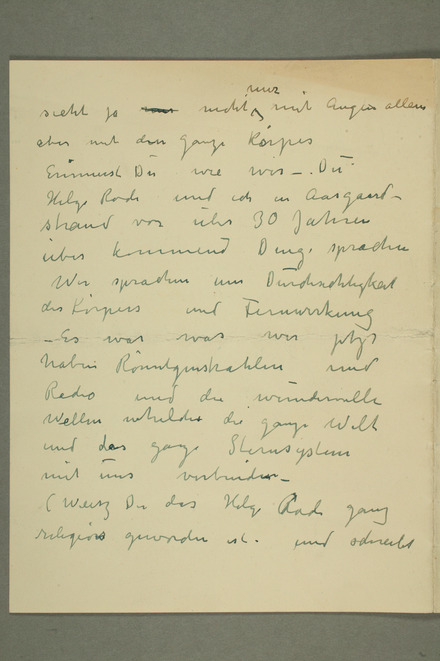 nur
sieht ja nicht mit Augen allein
aber mit den ganze Körper
Erinnerst Du wie wir – Du
Helge Rode und ich in Aasgaard-
strand vor über 30 Jahren
über kommend Dinge sprachen
Wir sprachen um Durchsichligkeit
des Körpers und Fernwirkung
– Es war was wir jetzt
haben Rönntgenstrahlen und
Radio und die wundervolle
Wellen die ganze Welt
und das ganze Sternsystem
mit uns verbinden –
(Weisz Du das Helge Rode ganz
religiös geworden ist. und schreibt